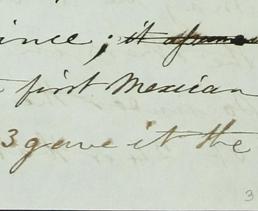 ince; it
first Mexican
3 gave it the
3